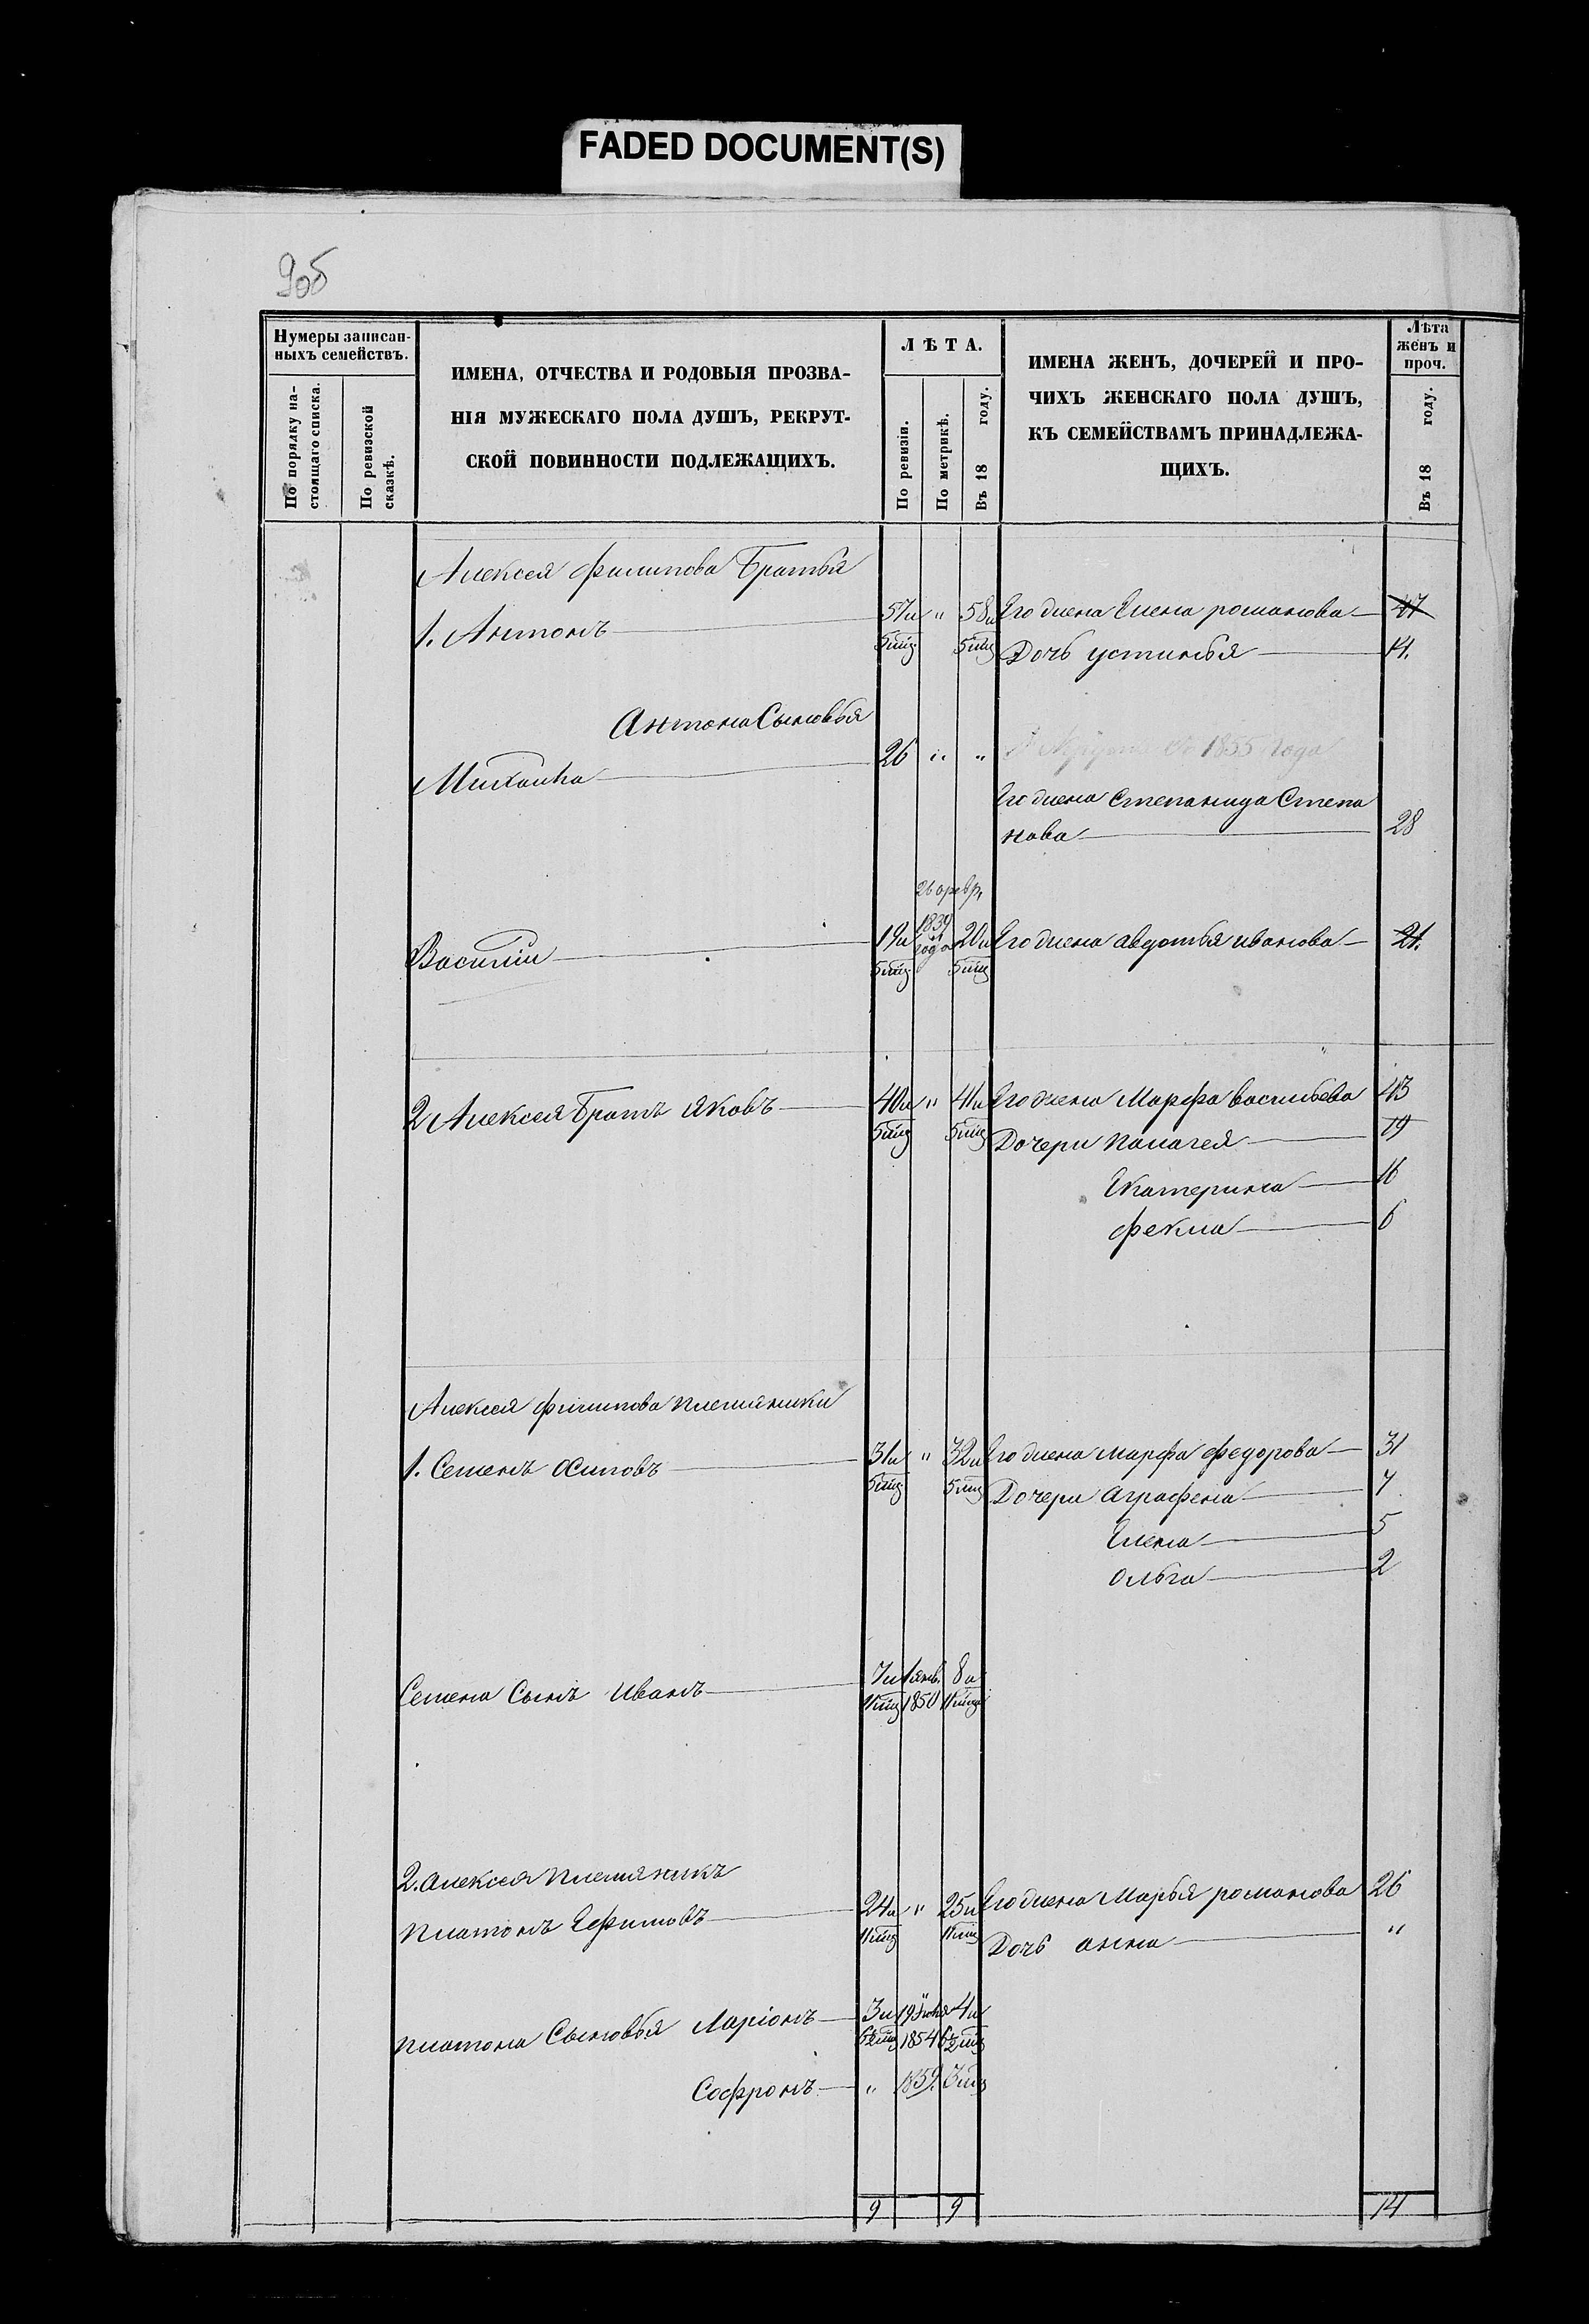 FADED DOCUMENT(S)
Нумеры записан-
ныхъ семействъ.
По порядку на-
стоящаго списка.
По ревизской
сказкѣ.
ИМЕНА, ОТЧЕСТВА И РОДОВЫЯ ПРОЗВА-
НІЯ МУЖЕСКАГО ПОЛА ДУШЪ, РЕКРУТ-
СКОЙ ПОВИННОСТИ ПОДЛЕЖАЩИХЪ.
ЛѢТА.
По ревизіи.
По метрикѣ.
Въ 18 году.
ИМЕНА ЖЕНЪ, ДОЧЕРЕЙ И ПРО-
ЧИХЪ ЖЕНСКАГО ПОЛА ДУШЪ,
КЪ СЕМЕЙСТВАМЪ ПРИНАДЛЕЖА-
ЩИХЪ.
Лѣта
женъ и
проч.
Въ 18 году.
Алексея филипова Братья
1. Антонъ 57 и " 58 и Его жена Елена романова 47
5 мц 5 мц Дочь устинья 14.
Антона Сыновья
Михаила 26 " " 1855 года
Его жена Степанида Степа
нова 28
26 февр.
Василий 19 и 1839 года 20 и Его жена авдотья иванова 21.
5 мц 5 мц
2 Алексея Братъ яковъ 40 и " 41 и Его жена Марфа васильева 43
5 мц 5 мц Дочери палагея 19
Екатерина 16
фекла 6
Алексея филипова племяники
1. Семенъ Осиповъ 31 и " 32 и Его жена марфа федорова 31
5 мц 5 мц Дочери аграфена 7
Елена 5
Ольга 2
Семена Сынъ иванъ 7 и 1 янв. 8 и
11 мц 1850 11 мц
2. алексея племяникъ
платонъ Ефимовъ 24 и " 25 и Его жена Марья романова 26
11 мц 11 мц Дочь анна "
платона Сыновья Ларіонъ 3 и 19 июня 4 и
6½ мц 1854 6½ мц
Софронъ " 1859. 3 мц
9 9 14